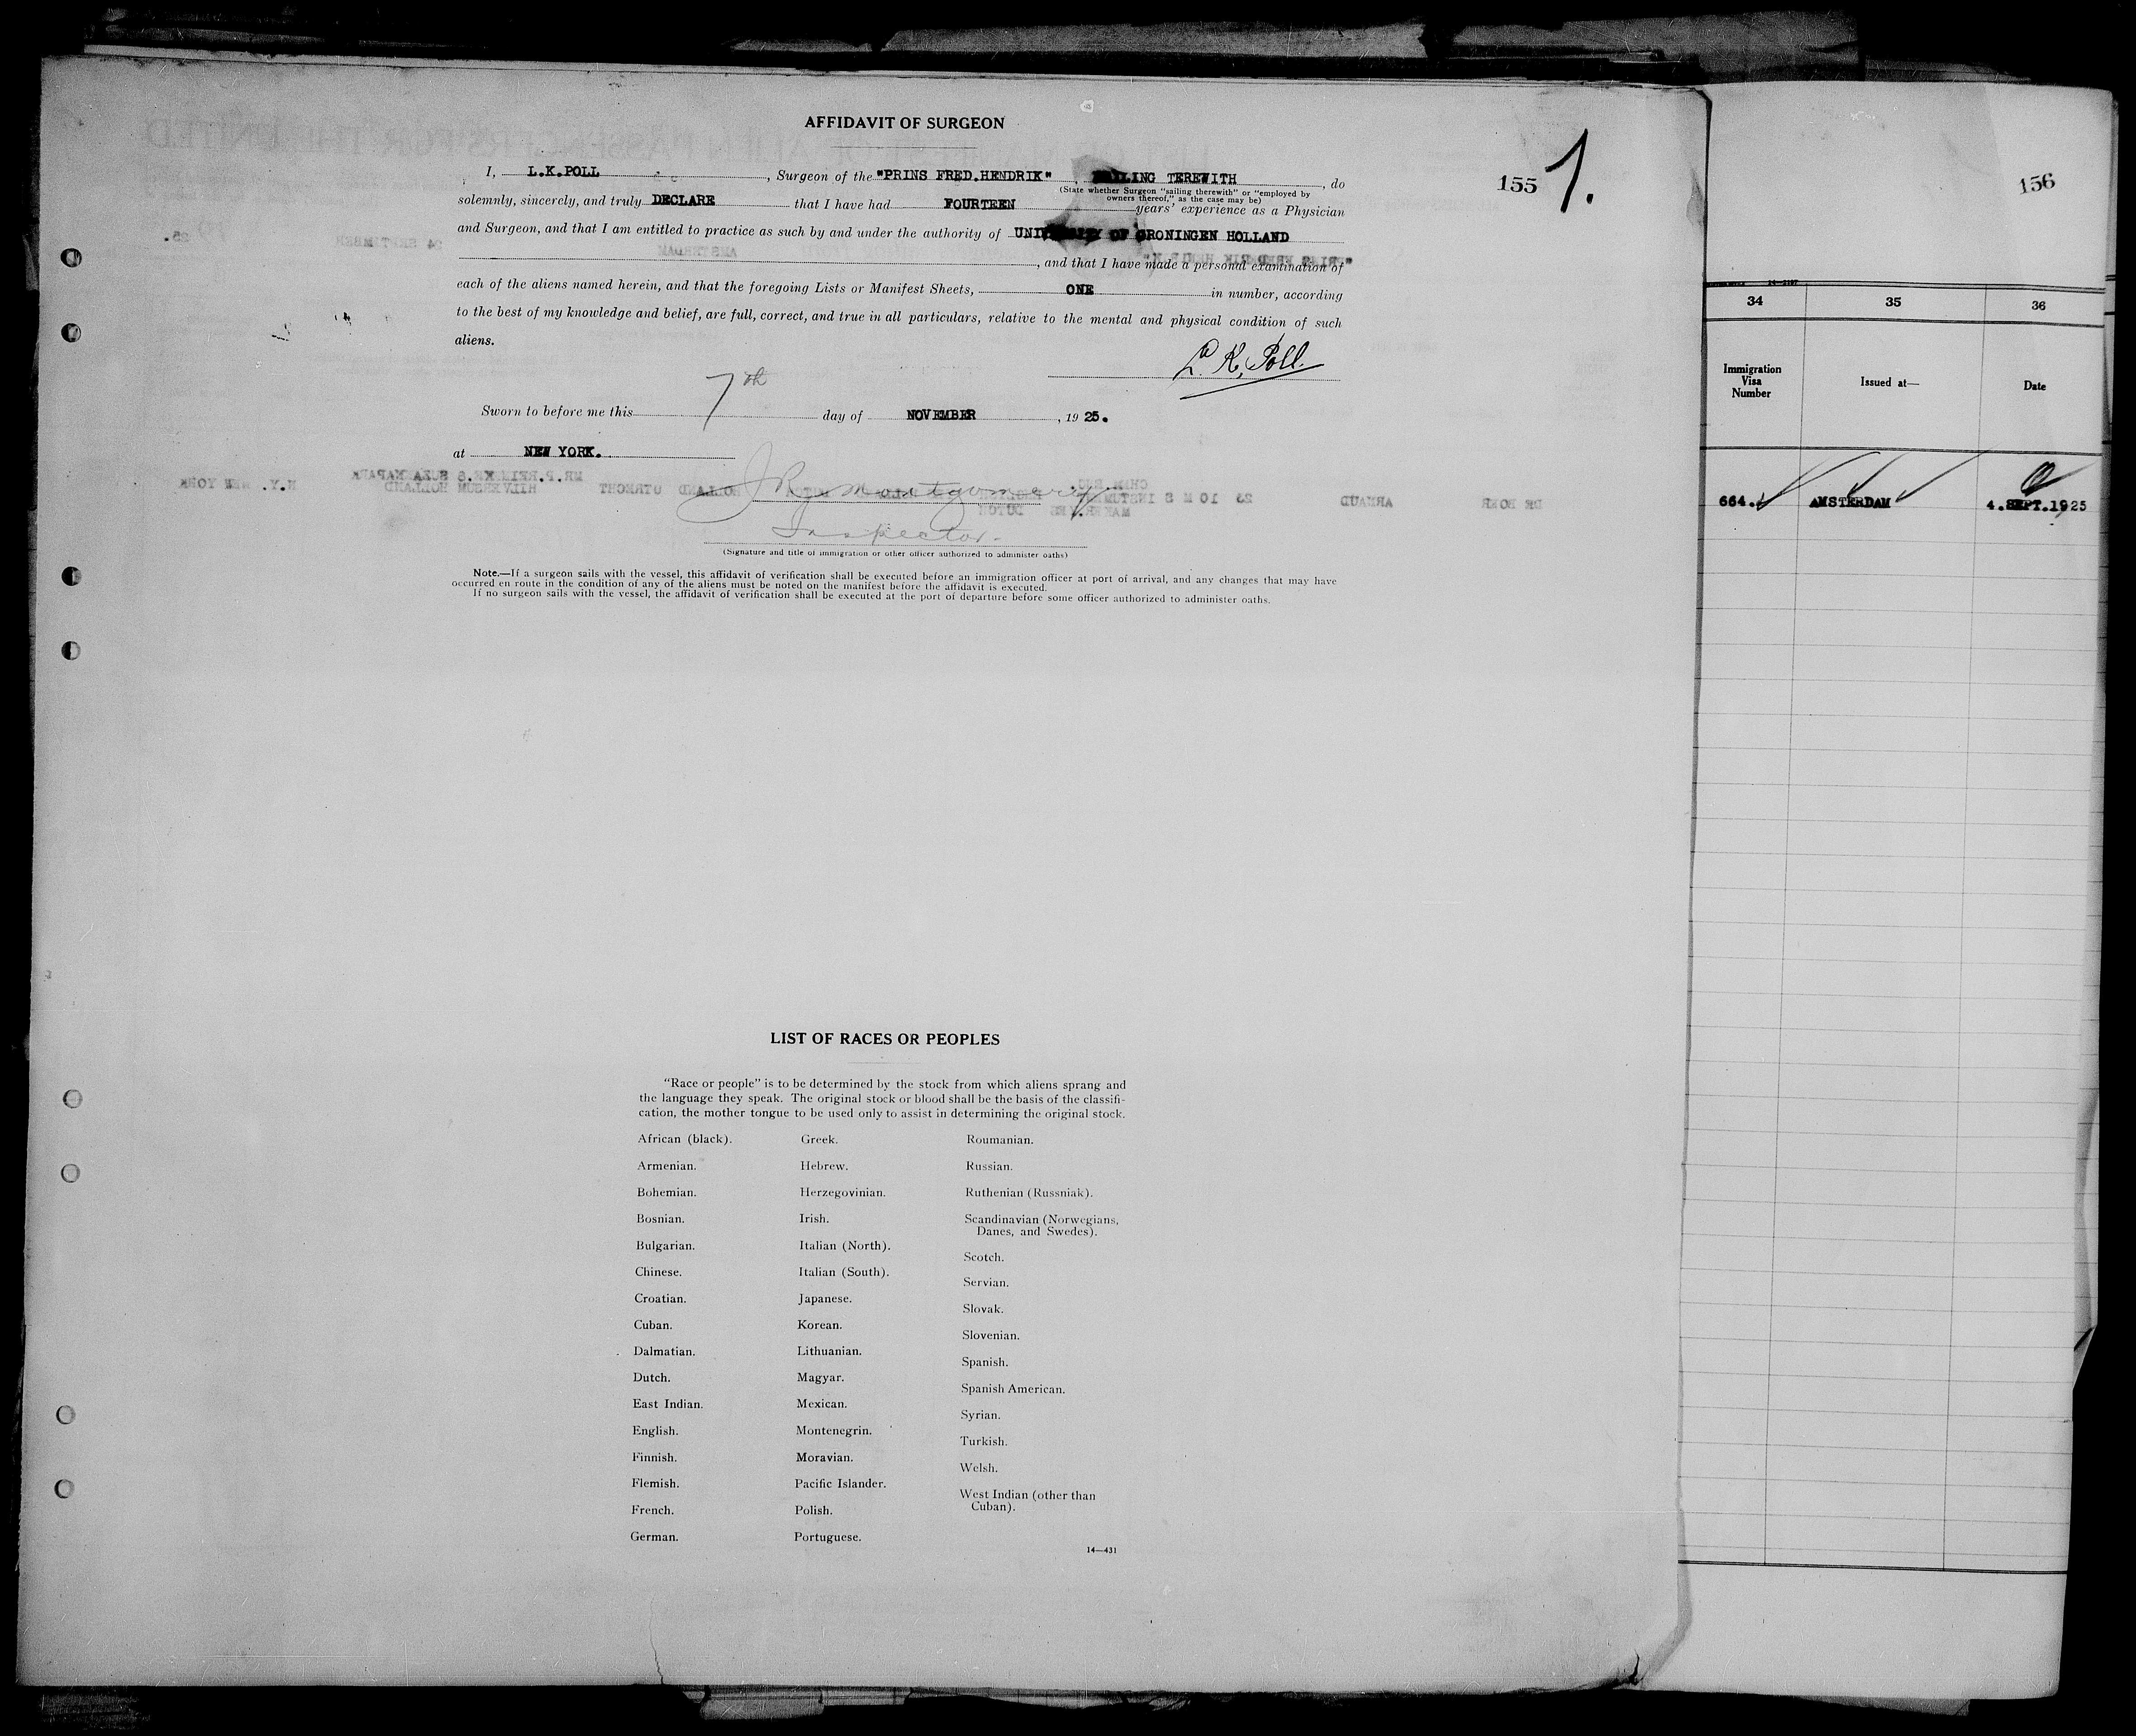 AFFIDAVIT OF SURGEON
155 1.
156
I, L.K.POLL, Surgeon of the "PRINS FRED.HENDRIK", SAILING TEREWITH, do
(State whether Surgeon "sailing therewith" or "employed by
owners thereof," as the case may be)
solemnly, sincerely, and truly DECLARE that I have had FOURTEEN years' experience as a Physician
and Surgeon, and that I am entitled to practice as such by and under the authority of UNIVERSITY OF GRONINGEN HOLLAND
, and that I have made a personal examination of
each of the aliens named herein, and that the foregoing Lists or Manifest Sheets, ONE in number, according
to the best of my knowledge and belief, are full, correct, and true in all particulars, relative to the mental and physical condition of such
aliens.
L. K. Poll.
Sworn to before me this 7th day of NOVEMBER, 19 25.
at NEW YORK.
J R Montgomery
Inspector.
(Signature and title of immigration or other officer authorized to administer oaths)
Note.—If a surgeon sails with the vessel, this affidavit of verification shall be executed before an immigration officer at port of arrival, and any changes that may have
occurred en route in the condition of any of the aliens must be noted on the manifest before the affidavit is executed.
If no surgeon sails with the vessel, the affidavit of verification shall be executed at the port of departure before some officer authorized to administer oaths.
34 35 36
Immigration
Visa
Number
Issued at—
Date
664. AMSTERDAM 4.SEPT.1925
LIST OF RACES OR PEOPLES
"Race or people" is to be determined by the stock from which aliens sprang and
the language they speak. The original stock or blood shall be the basis of the classifi-
cation, the mother tongue to be used only to assist in determining the original stock.
African (black).
Armenian.
Bohemian.
Bosnian.
Bulgarian.
Chinese.
Croatian.
Cuban.
Dalmatian.
Dutch.
East Indian.
English.
Finnish.
Flemish.
French.
German.
Greek.
Hebrew.
Herzegovinian.
Irish.
Italian (North).
Italian (South).
Japanese.
Korean.
Lithuanian.
Magyar.
Mexican.
Montenegrin.
Moravian.
Pacific Islander.
Polish.
Portuguese.
Roumanian.
Russian.
Ruthenian (Russniak).
Scandinavian (Norwegians,
Danes, and Swedes).
Scotch.
Servian.
Slovak.
Slovenian.
Spanish.
Spanish American.
Syrian.
Turkish.
Welsh.
West Indian (other than
Cuban).
14—431